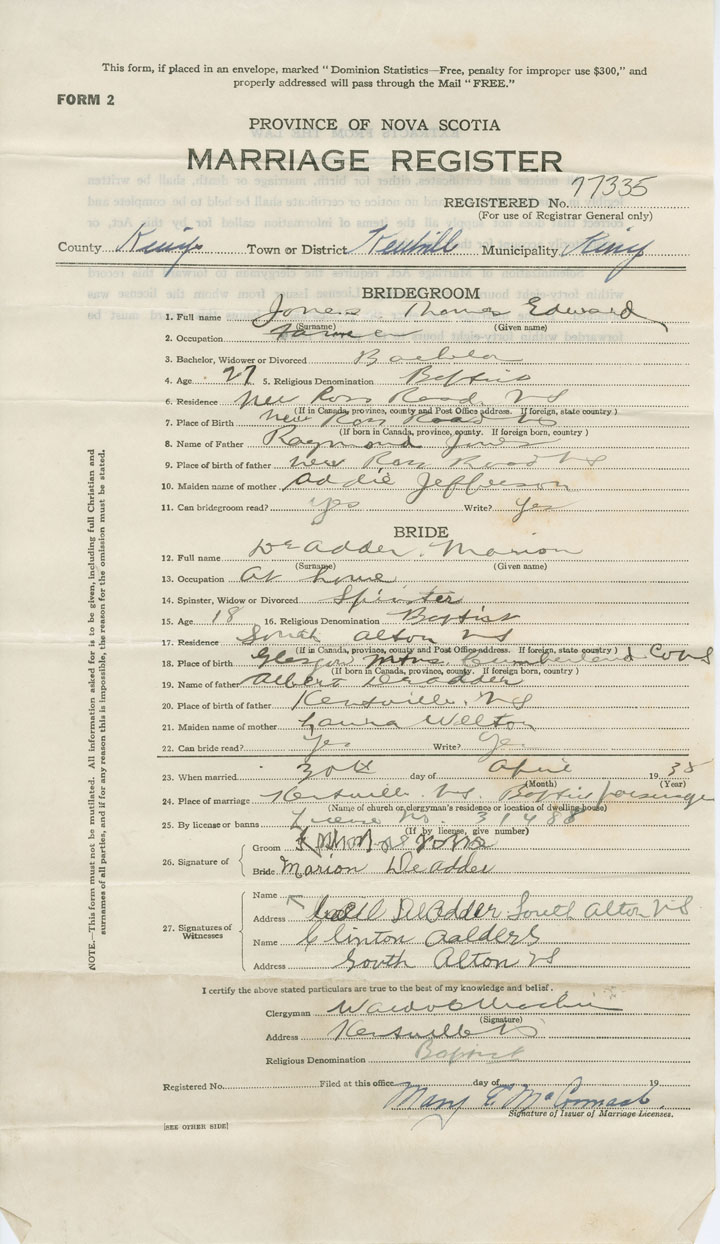 This form, if placed in an envelope, marked "Dominion Statistics—Free, penalty for improper use $300," and
properly addressed will pass through the Mail "FREE."
FORM 2
PROVINCE OF NOVA SCOTIA
MARRIAGE REGISTER
REGISTERED No. 77335
(For use of Registrar General only)
County Kings Town or District Kentville Municipality Kings
BRIDEGROOM
1. Full name Jones Thomas Edward
(Surname) (Given name)
2. Occupation Farmer
3. Bachelor, Widower or Divorced Bachelor
4. Age 27 5. Religious Denomination Baptist
6. Residence New Ross Road, NS
(If in Canada, province, county and Post Office address. If foreign, state country)
7. Place of Birth New Ross Road NS
(If born in Canada, province, county. If foreign born, country)
8. Name of Father Raymond Jones
9. Place of birth of father New Ross Road NS
10. Maiden name of mother Addie Jefferson
11. Can bridegroom read? yes Write? Yes
BRIDE
12. Full name DeAdder, Marion
(Surname) (Given name)
13. Occupation At home
14. Spinster, Widow or Divorced Spinster
15. Age 18 16. Religious Denomination Baptist
17. Residence South Alton NS
(If in Canada, province, county and Post Office address. If foreign, state country)
18. Place of birth Glasgow Mtns. Cumberland Co NS
(If born in Canada, province, county. If foreign born, country)
19. Name of father Albert Deadder
20. Place of birth of father Kentville, NS
21. Maiden name of mother Laura Wellton
22. Can bride read? Yes Write? Yes
23. When married 30th day of April 1938
(Month) (Year)
24. Place of marriage Kentville NS. Baptist parsonage
(Name of church or clergyman's residence or location of dwelling-house)
25. By license or banns License No. 31488
(If by license, give number)
26. Signature of
Groom
Bride Marion DeAdder
27. Signatures of Witnesses
Name
Address DeAdder South Alton NS
Name Clinton Aalders
Address South Alton NS
I certify the above stated particulars are true to the best of my knowledge and belief.
Clergyman
(Signature)
Address Kentville NS
Religious Denomination Baptist
Registered No. Filed at this office day of 19
Mary E. McCormack
Signature of Issuer of Marriage Licenses.
[SEE OTHER SIDE]
NOTE.—This form must not be mutilated. All information asked for is to be given, including full Christian and
surnames of all parties, and if for any reason this is impossible, the reason for the omission must be stated.